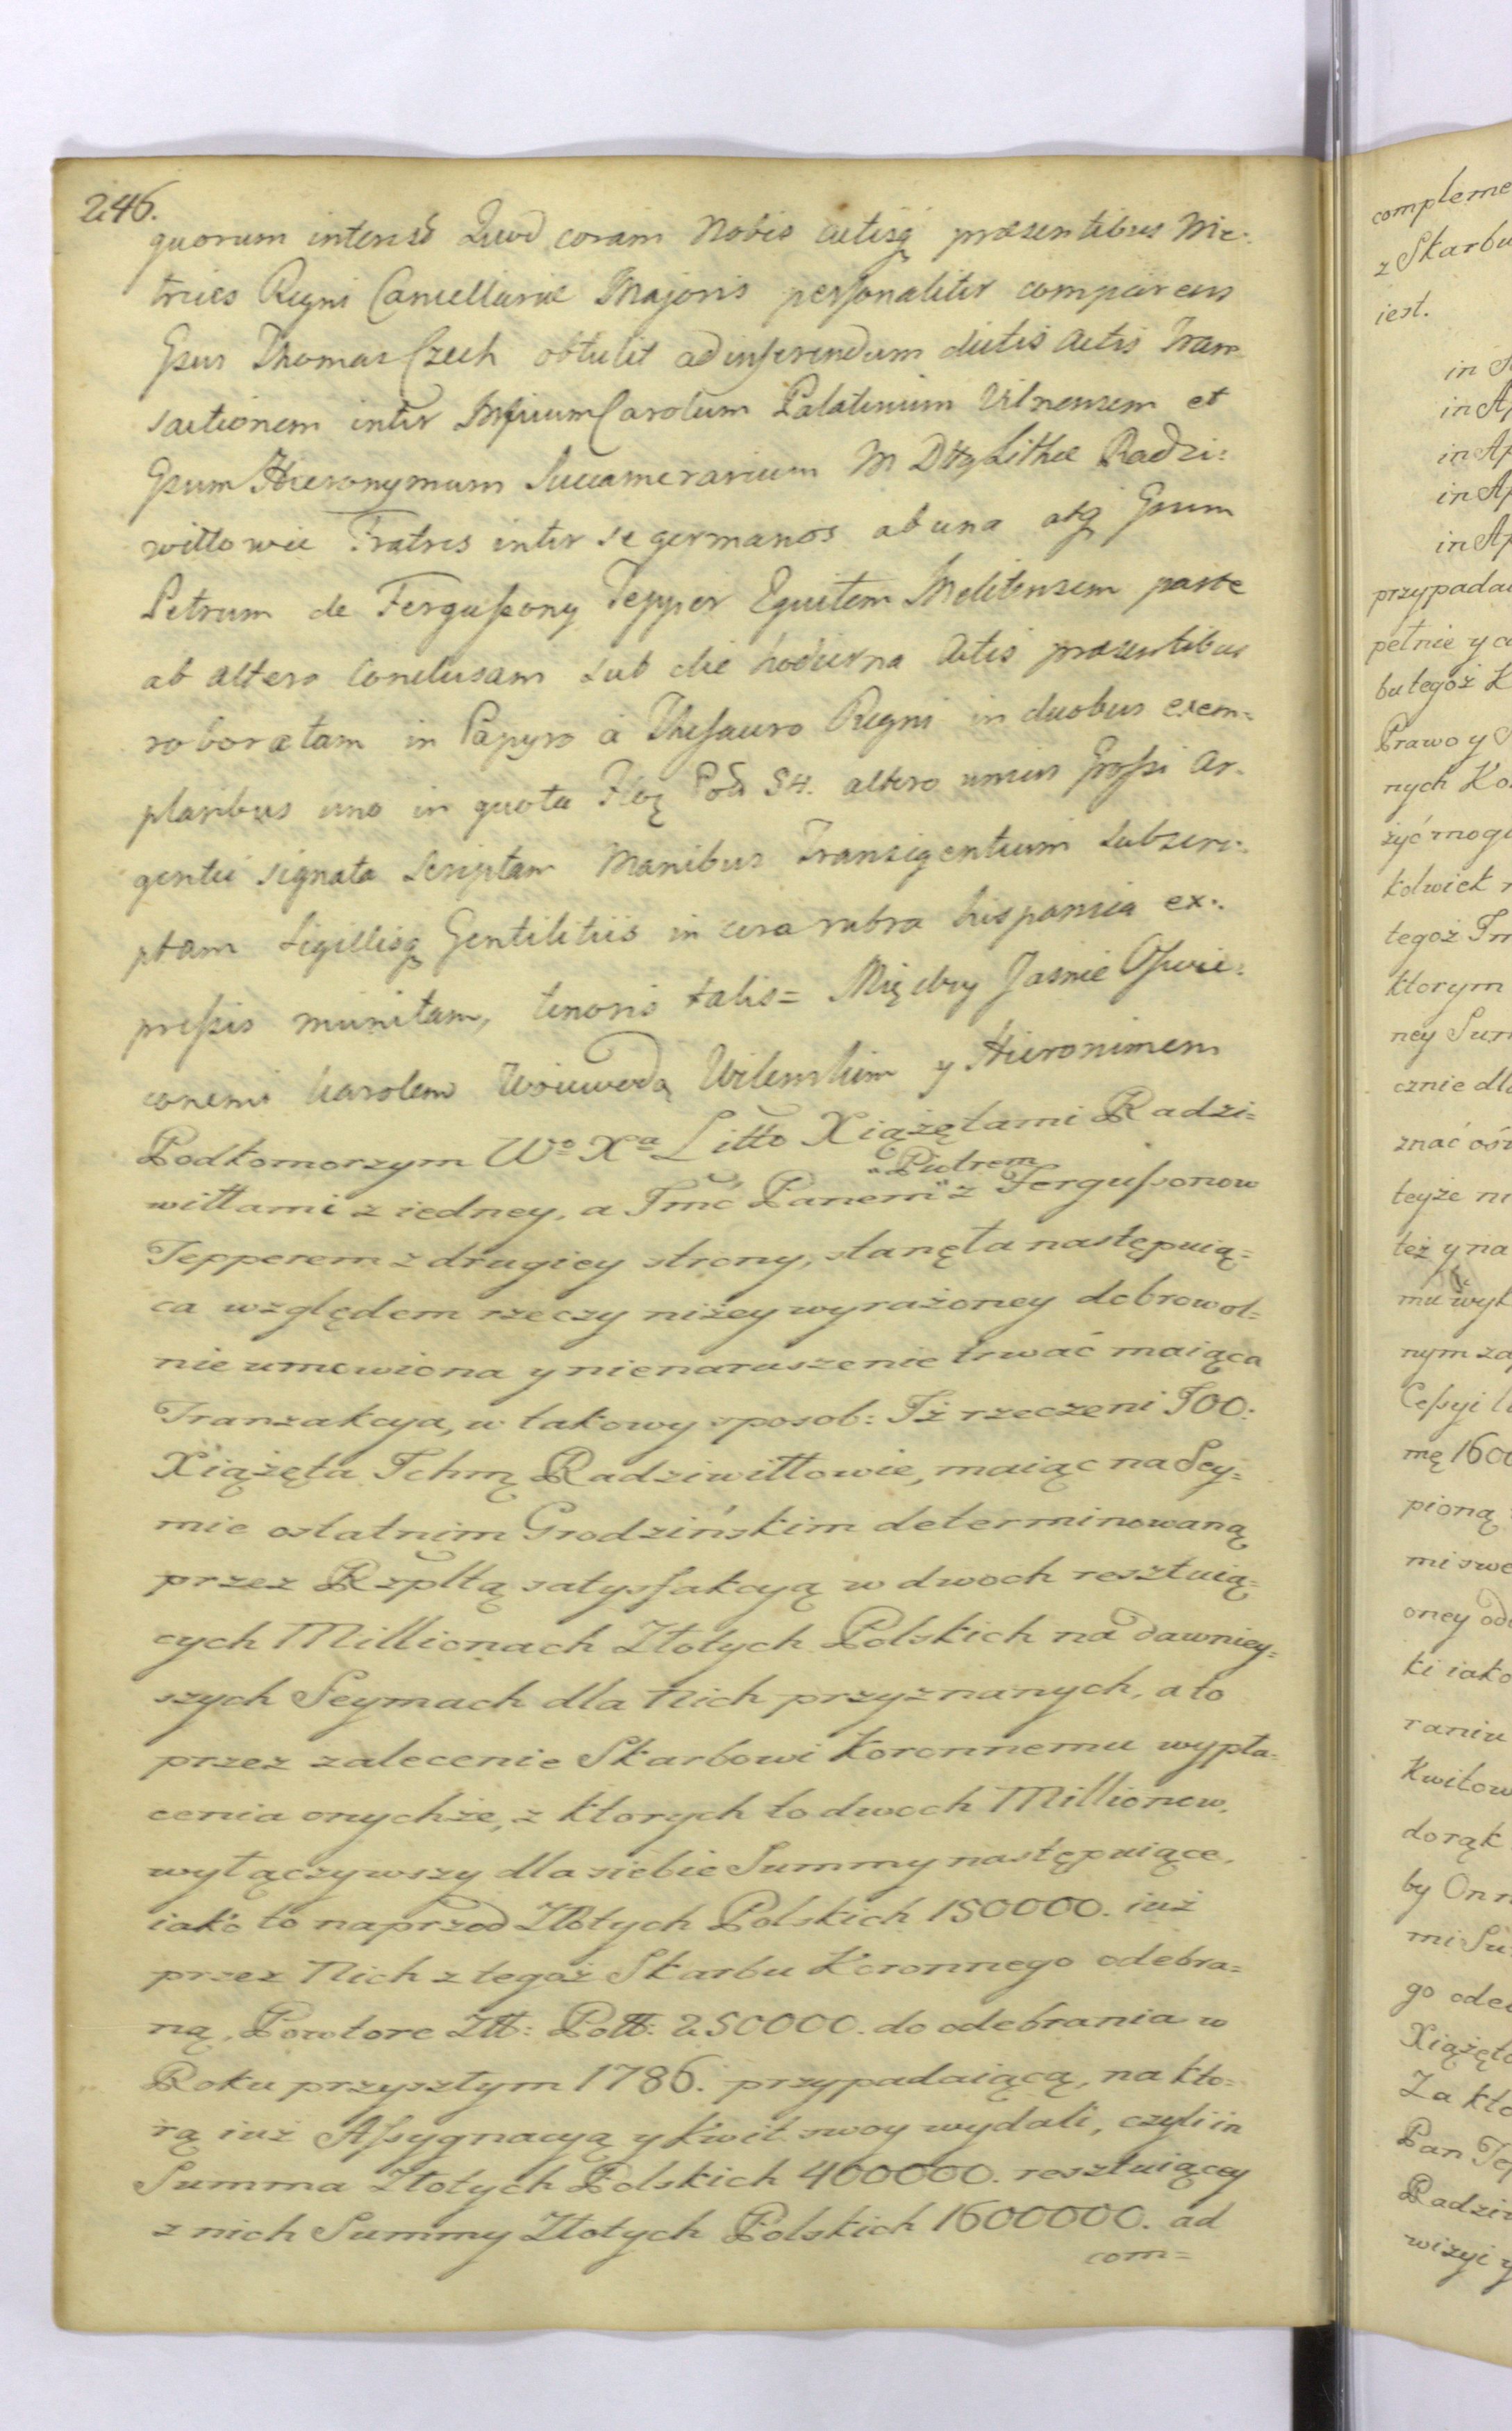 246.
quorum interest Quod coram Nobis actisq præsentibus Me:
trices Regni Cancellariæ Majoris personaliter comparens
Gsus Thomas Czech obtulit ad inserendum dictis Actis Tran
sactionem inter Carolum Palatinum Vilnensem et
Gsum Hieronymum Succamerarium M D Lithæ Radzi:
willowie Fratres inter se germanos ab una atq Gsum
Petrum de Fergussony Tepper Equitem Melitensem parte
ab altera Conclusam sub die hodierna Actis præsentibus
roboratam in Papyro à Thesauro Regni in duobus exem:
plaribus uno in quota Poll 54. altero unius Grossi Ar:
gentei signata Scriptam Manibus Transigentium subscri:
ptam Sigillisq Gentilitiis in cera rubra hispanica ex:
pressis munitam, tenoris talis= Między Jasnie Oswie:
conemi Karolem Woiewodą Wilenskim y Hieronimem
Podkomorzym Wo Xa Litto Xiążętami Radzi=
willami z iedney, a Jmć Panem z Fergussonow
"Piotrem"
Tepperem z drugiey strony, stanęła następuią=
ca względem rzeczy niżey wyrażoney dobrowol=
nie umowiona y nienaruszenie trwać maiąca
Tranzakcya, w takowy sposob: Iż rzeczeni JOO:
Xiążęta Ichmę Radziwiłłowie, maiąc na Sey=
mie ostatnim Grodzińskim determinowaną
przez Rzpltą satysfakcyą w dwoch resztuią=
cych Millionach Złotych Polskich na dawniey=
szych Seymach dla Nich przyznanych, a to
przez zalecenie Skarbowi Koronnemu wypła=
cenia onychże, z ktorych to dwoch Millionow,
wyłączywszy dla siebie Summy następuiące,
iako to naprzod Złotych Polskich 150000. iuż
przez Nich z tegoż Skarbu Koronnego odebra=
ną, Powtore Złł: Poll: 250000. do odebrania w
Roku przyszłym 1786. przypadaiącą, na kto=
rą iuż Assygnacyą y Kwit swoy wydali, czyli in
Summa Złotych Polskich 400000. resztuiącey
z nich Summy Złotych Polskich 1600000. ad
com=
compleme
z Skarbu
iest.
in
in Ap
in Ap
in Ap
in Ap
przypada
pełnie y
bu tegoż K
Prawo y
nych Ko
żyć mog
kolwiek
tegoż
ktorym
ney Sum
cznie dla
znać
teyże
też y na
mu wyk
nym za
Cessyi
mę 1600
pioną
mi swe
oney od
ki iako
raniu
Kwitow
do rąk
by On
mi Su
go ode
Xiążęt
Za kto
Pan Tep
Radziw
wizyi y